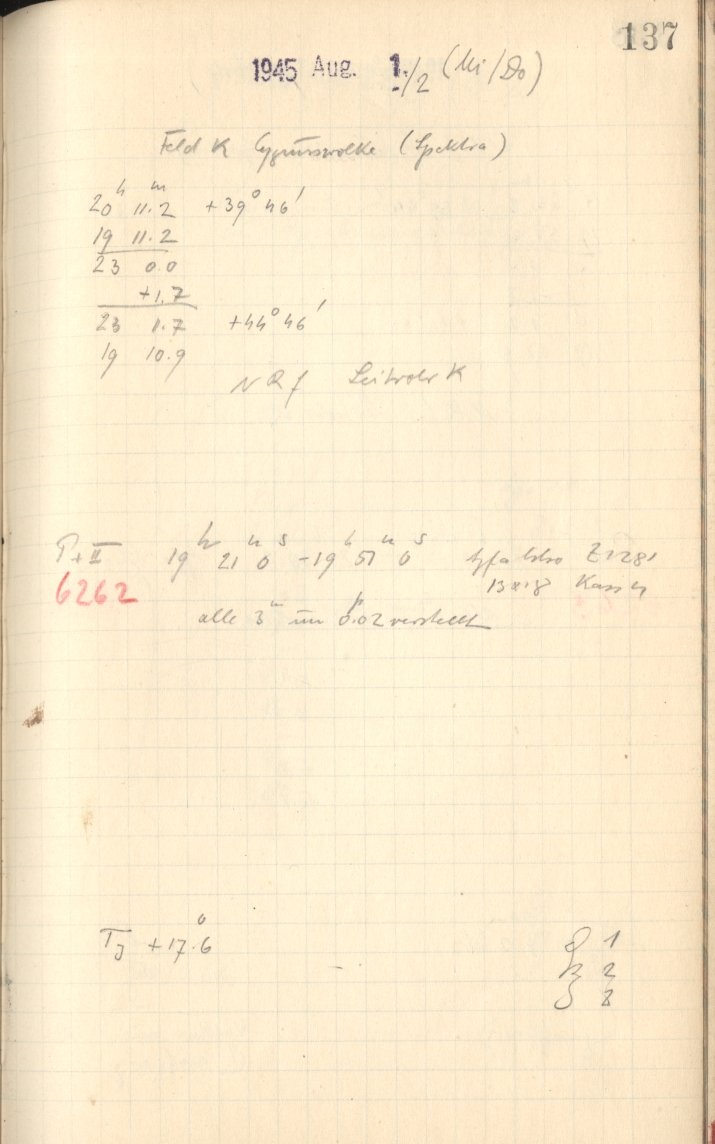 137
1945 Aug. 1./2 (Mi/Do)
Feld K Cygnuswolke (Spektra)
20 h 11.2 m +39° 46'
19 11.2
23 0.0
+1.7
23 1.7 +44° 46'
19 10.9
N R f Leitrohr K
P I+II 19 h 21 m 0 s - 19 h 51 m 0 s Z 1281
6262 13x18 Kass 4
alle 3 m um 0.02 verstellt
TJ +17.6°
1
2